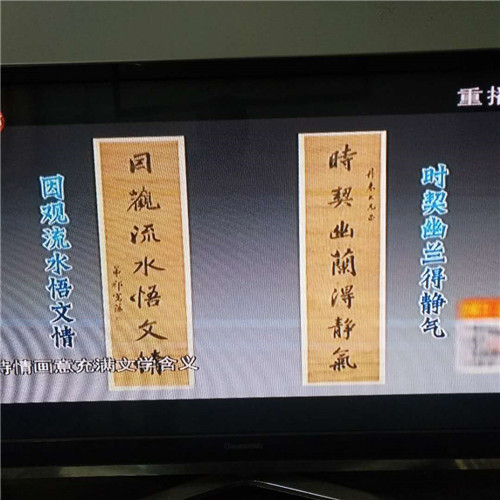 重播
时契幽兰得静气
時契幽蘭得静氣
因觀流水悟文情
因观流水悟文情
诗情画意充满文学含义